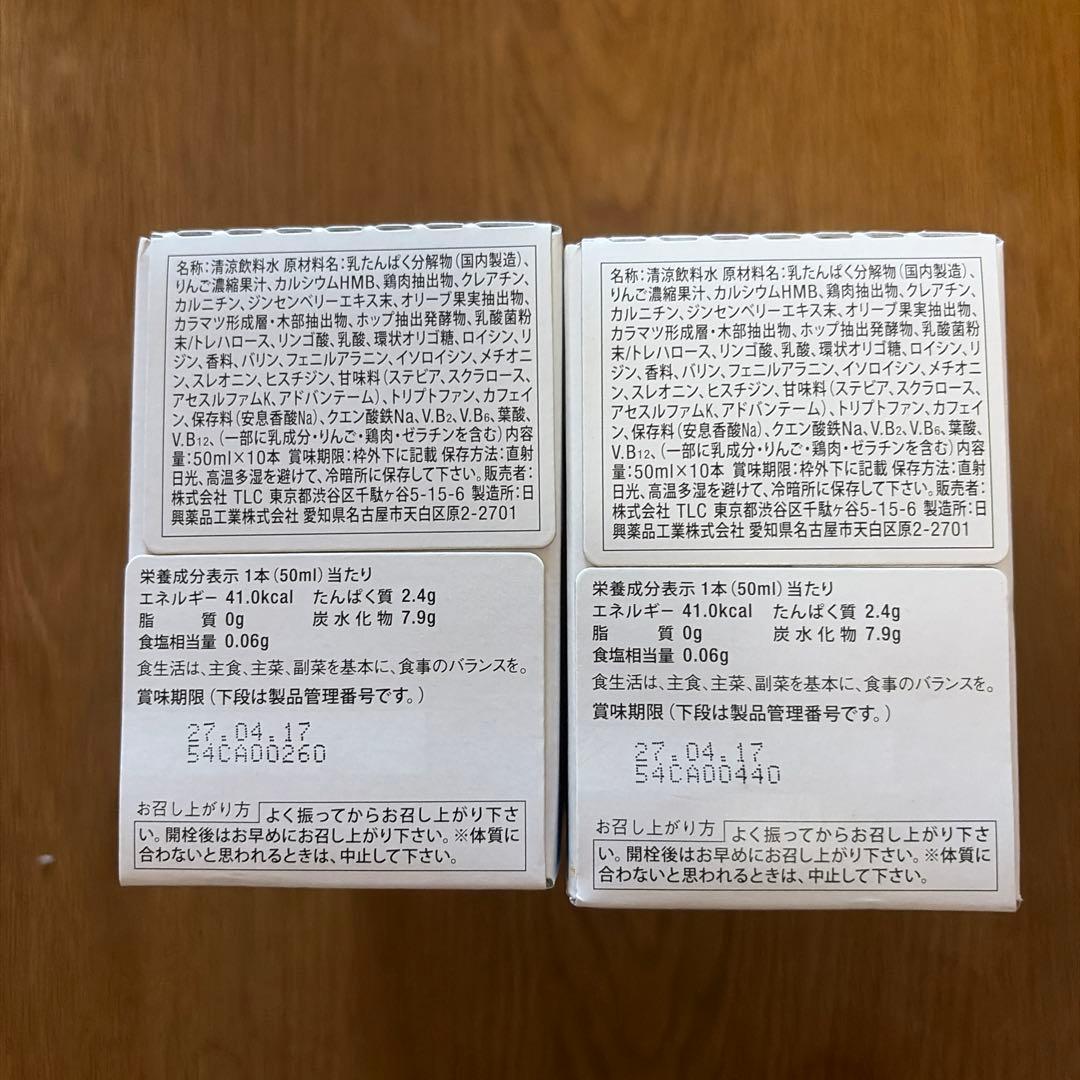 名称：清涼飲料水 原材料名：乳たんぱく分解物（国内製造）、
りんご濃縮果汁、カルシウムHMB、鶏肉抽出物、クレアチン、
カルニチン、ジンセンベリーエキス末、オリーブ果実抽出物、
カラマツ形成層・木部抽出物、ホップ抽出発酵物、乳酸菌粉
末/トレハロース、リンゴ酸、乳酸、環状オリゴ糖、ロイシン、リ
ジン、香料、バリン、フェニルアラニン、イソロイシン、メチオニ
ン、スレオニン、ヒスチジン、甘味料（ステビア、スクラロース、
アセスルファムK、アドバンテーム）、トリプトファン、カフェイ
ン、保存料（安息香酸Na）、クエン酸鉄Na、V.B2、V.B6、葉酸、
V.B12、（一部に乳成分・りんご・鶏肉・ゼラチンを含む）内容
量：50ml×10本 賞味期限：枠外下に記載 保存方法：直射
日光、高温多湿を避けて、冷暗所に保存して下さい。販売者：
株式会社 TLC 東京都渋谷区千駄ヶ谷5-15-6 製造所：日
興薬品工業株式会社 愛知県名古屋市天白区原2-2701
栄養成分表示 1本（50ml）当たり
エネルギー 41.0kcal たんぱく質 2.4g
脂質 0g 炭水化物 7.9g
食塩相当量 0.06g
食生活は、主食、主菜、副菜を基本に、食事のバランスを。
賞味期限（下段は製品管理番号です。）
27.04.17
54CA00260
お召し上がり方 よく振ってからお召し上がり下さ
い。開栓後はお早めにお召し上がり下さい。※体質に
合わないと思われるときは、中止して下さい。
名称：清涼飲料水 原材料名：乳たんぱく分解物（国内製造）、
りんご濃縮果汁、カルシウムHMB、鶏肉抽出物、クレアチン、
カルニチン、ジンセンベリーエキス末、オリーブ果実抽出物、
カラマツ形成層・木部抽出物、ホップ抽出発酵物、乳酸菌粉
末/トレハロース、リンゴ酸、乳酸、環状オリゴ糖、ロイシン、リ
ジン、香料、バリン、フェニルアラニン、イソロイシン、メチオニ
ン、スレオニン、ヒスチジン、甘味料（ステビア、スクラロース、
アセスルファムK、アドバンテーム）、トリプトファン、カフェイ
ン、保存料（安息香酸Na）、クエン酸鉄Na、V.B2、V.B6、葉酸、
V.B12、（一部に乳成分・りんご・鶏肉・ゼラチンを含む）内容
量：50ml×10本 賞味期限：枠外下に記載 保存方法：直射
日光、高温多湿を避けて、冷暗所に保存して下さい。販売者：
株式会社 TLC 東京都渋谷区千駄ヶ谷5-15-6 製造所：日
興薬品工業株式会社 愛知県名古屋市天白区原2-2701
栄養成分表示 1本（50ml）当たり
エネルギー 41.0kcal たんぱく質 2.4g
脂質 0g 炭水化物 7.9g
食塩相当量 0.06g
食生活は、主食、主菜、副菜を基本に、食事のバランスを。
賞味期限（下段は製品管理番号です。）
27.04.17
54CA00440
お召し上がり方 よく振ってからお召し上がり下さ
い。開栓後はお早めにお召し上がり下さい。※体質に
合わないと思われるときは、中止して下さい。